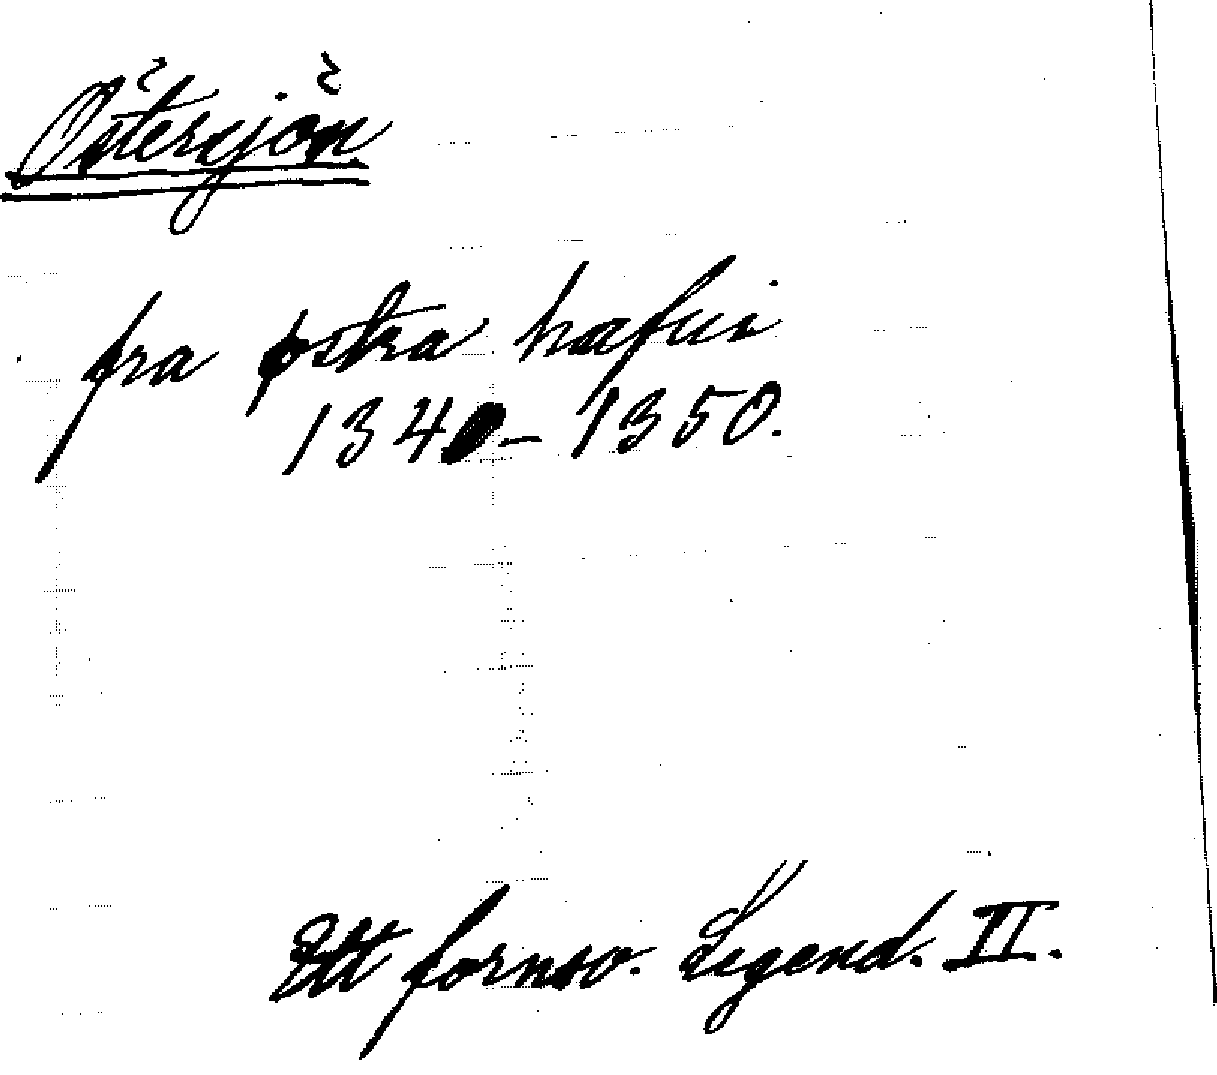 Östersjön
fra østra hafui
1340-1350.
Ett fornsv. Legend. II.